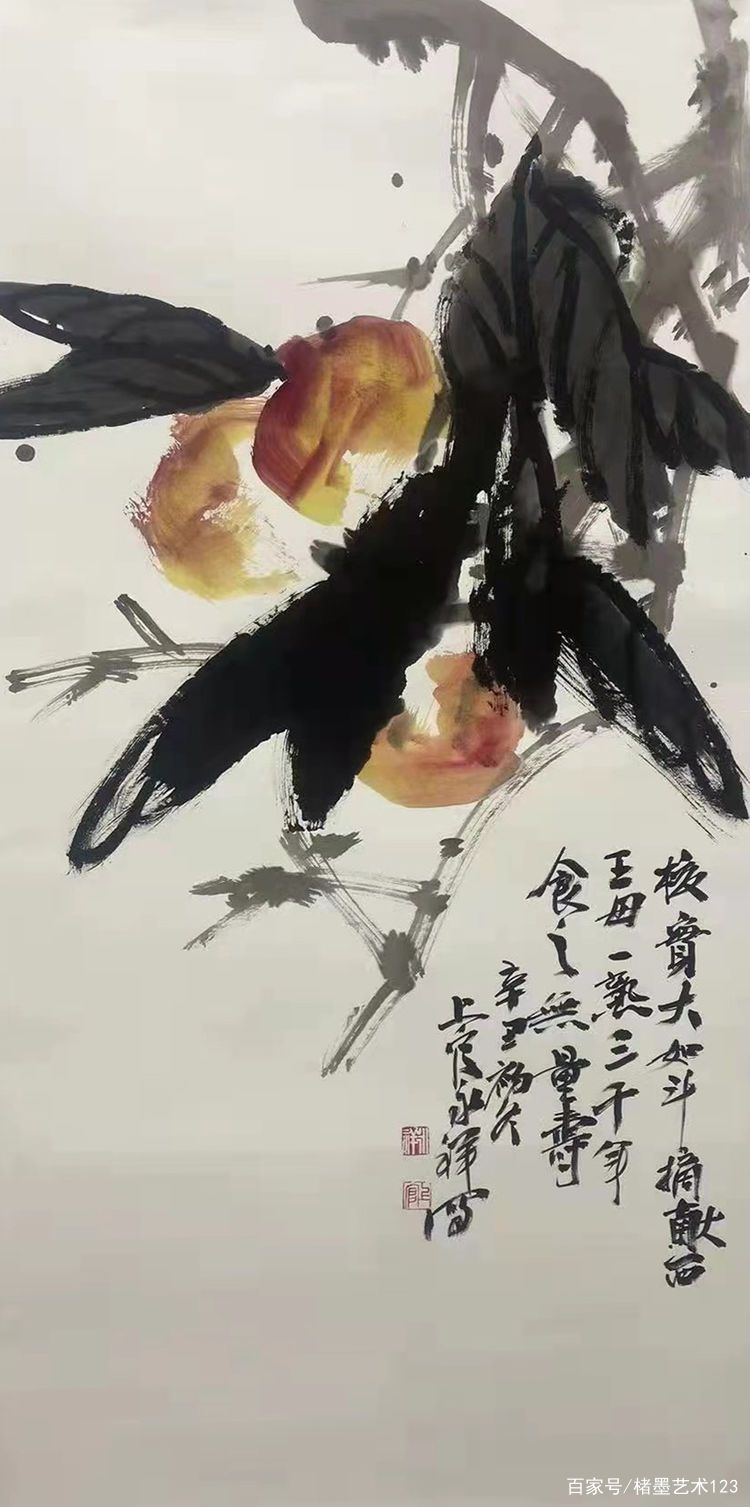 核實大如斗摘獻西
王母一熟三千年
食之無量壽
辛丑初冬
上官永祥寫
上官
百家号/楮墨艺术123